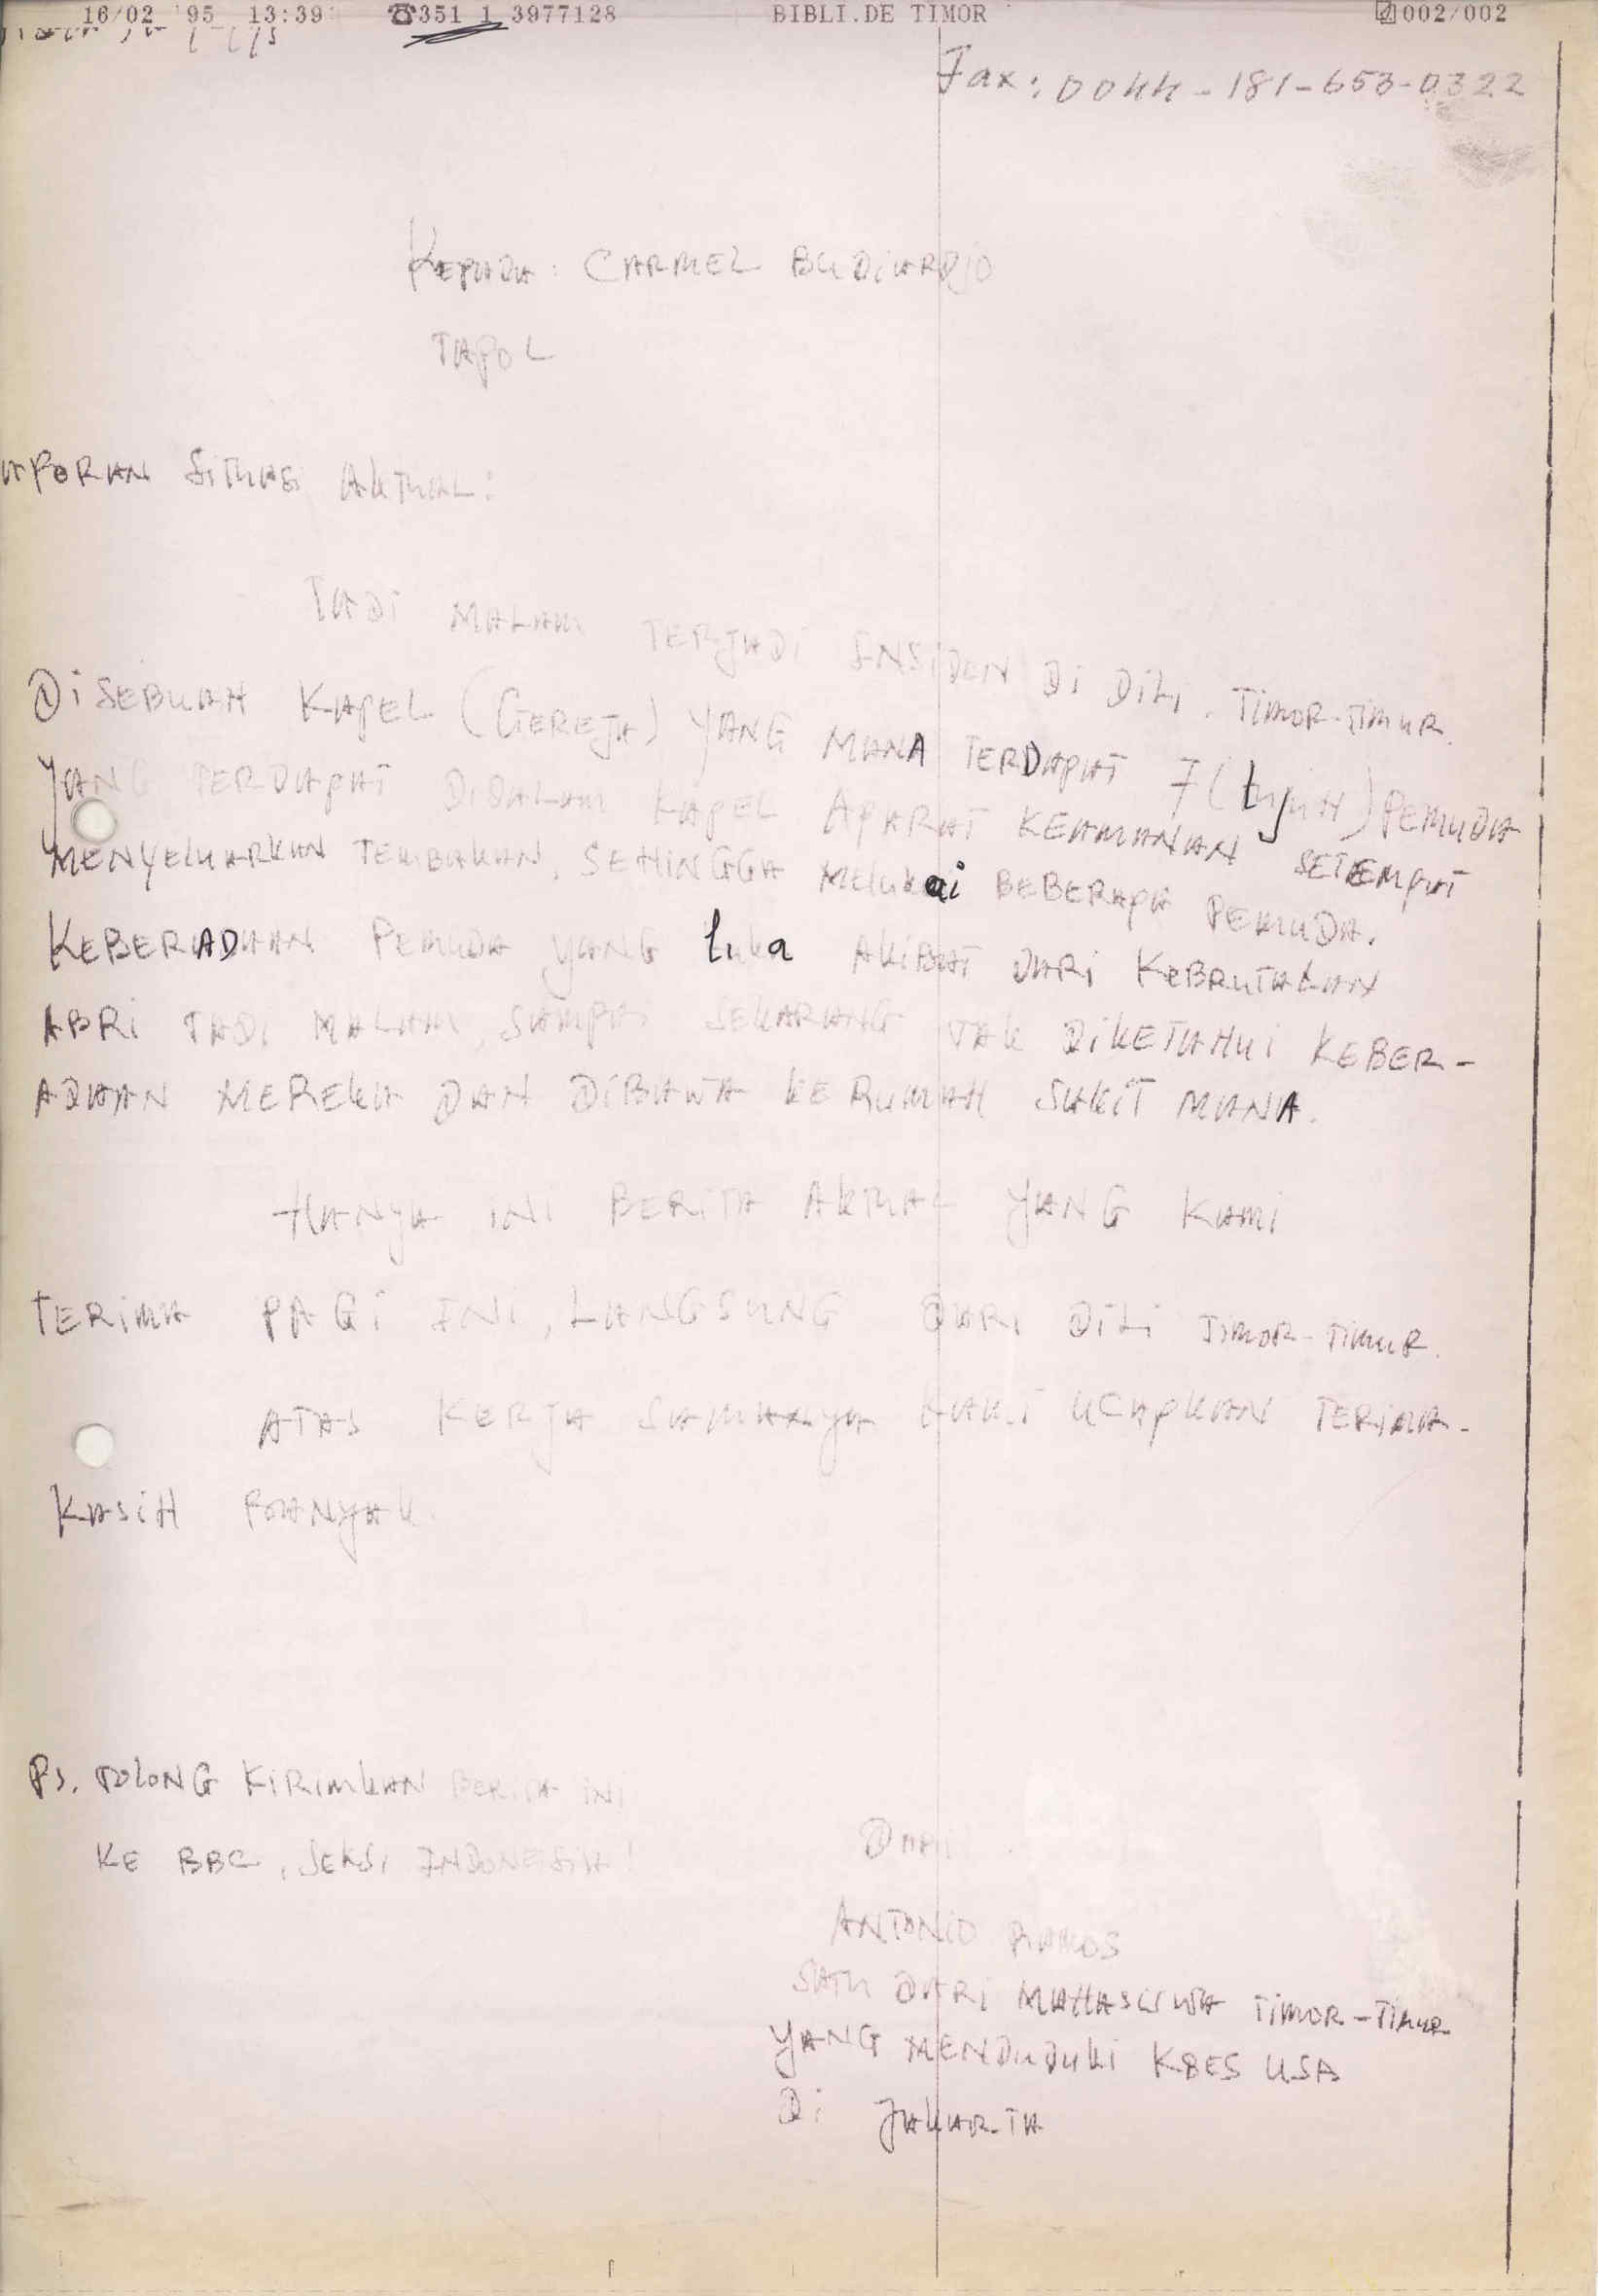 16/02 '95 13:39 ☎351 1 3977128 BIBLI.DE TIMOR 002/002
Fax: 0044-181-653-0322
KEPADA: CARMEL BUDIARDJO
TAPOL
APORAN SITUASI AKTUAL:
TADI MALAM TERJADI INSIDEN DI DILI. TIMOR-TIMUR.
DISEBUAH KAPEL (GEREJA) YANG MANA TERDAPAT 7 (tujuH) PEMUDA
YANG TERDAPAT DIDALAM KAPEL APARAT KEAMANAN SETEMPAT
MENYELUARKAN TEMBAKAN, SEHINGGA MELUKai BEBERAPA PEMUDA.
KEBERADAAN PEMUDA YANG luka AKIBAT DARI KEBRUTALAN
ABRI TADI MALAM, SAMPAI SEKARANG TAK DIKETAHUI KEBER-
ADAAN MEREKA DAN DIBAWA KERUMAH SAKIT MANA.
HANYA INI BERITA AKTUAL YANG KAMI
TERIMA PAGI INI, LANGSUNG DARI DILI TIMOR-TIMUR.
ATAS KERJA SAMANYA KAMI UCAPKAN TERIMA-
KASIH BANYAK.
Ps. TOLONG KIRIMKAN BERITA INI
KE BBC, SEKSI INDONESIA!
DARI
ANTONIO RAMOS
SATU DARI MAHASISWA TIMOR-TIMUR
YANG MENDUDUKI KBES USA
DI JAKARTA